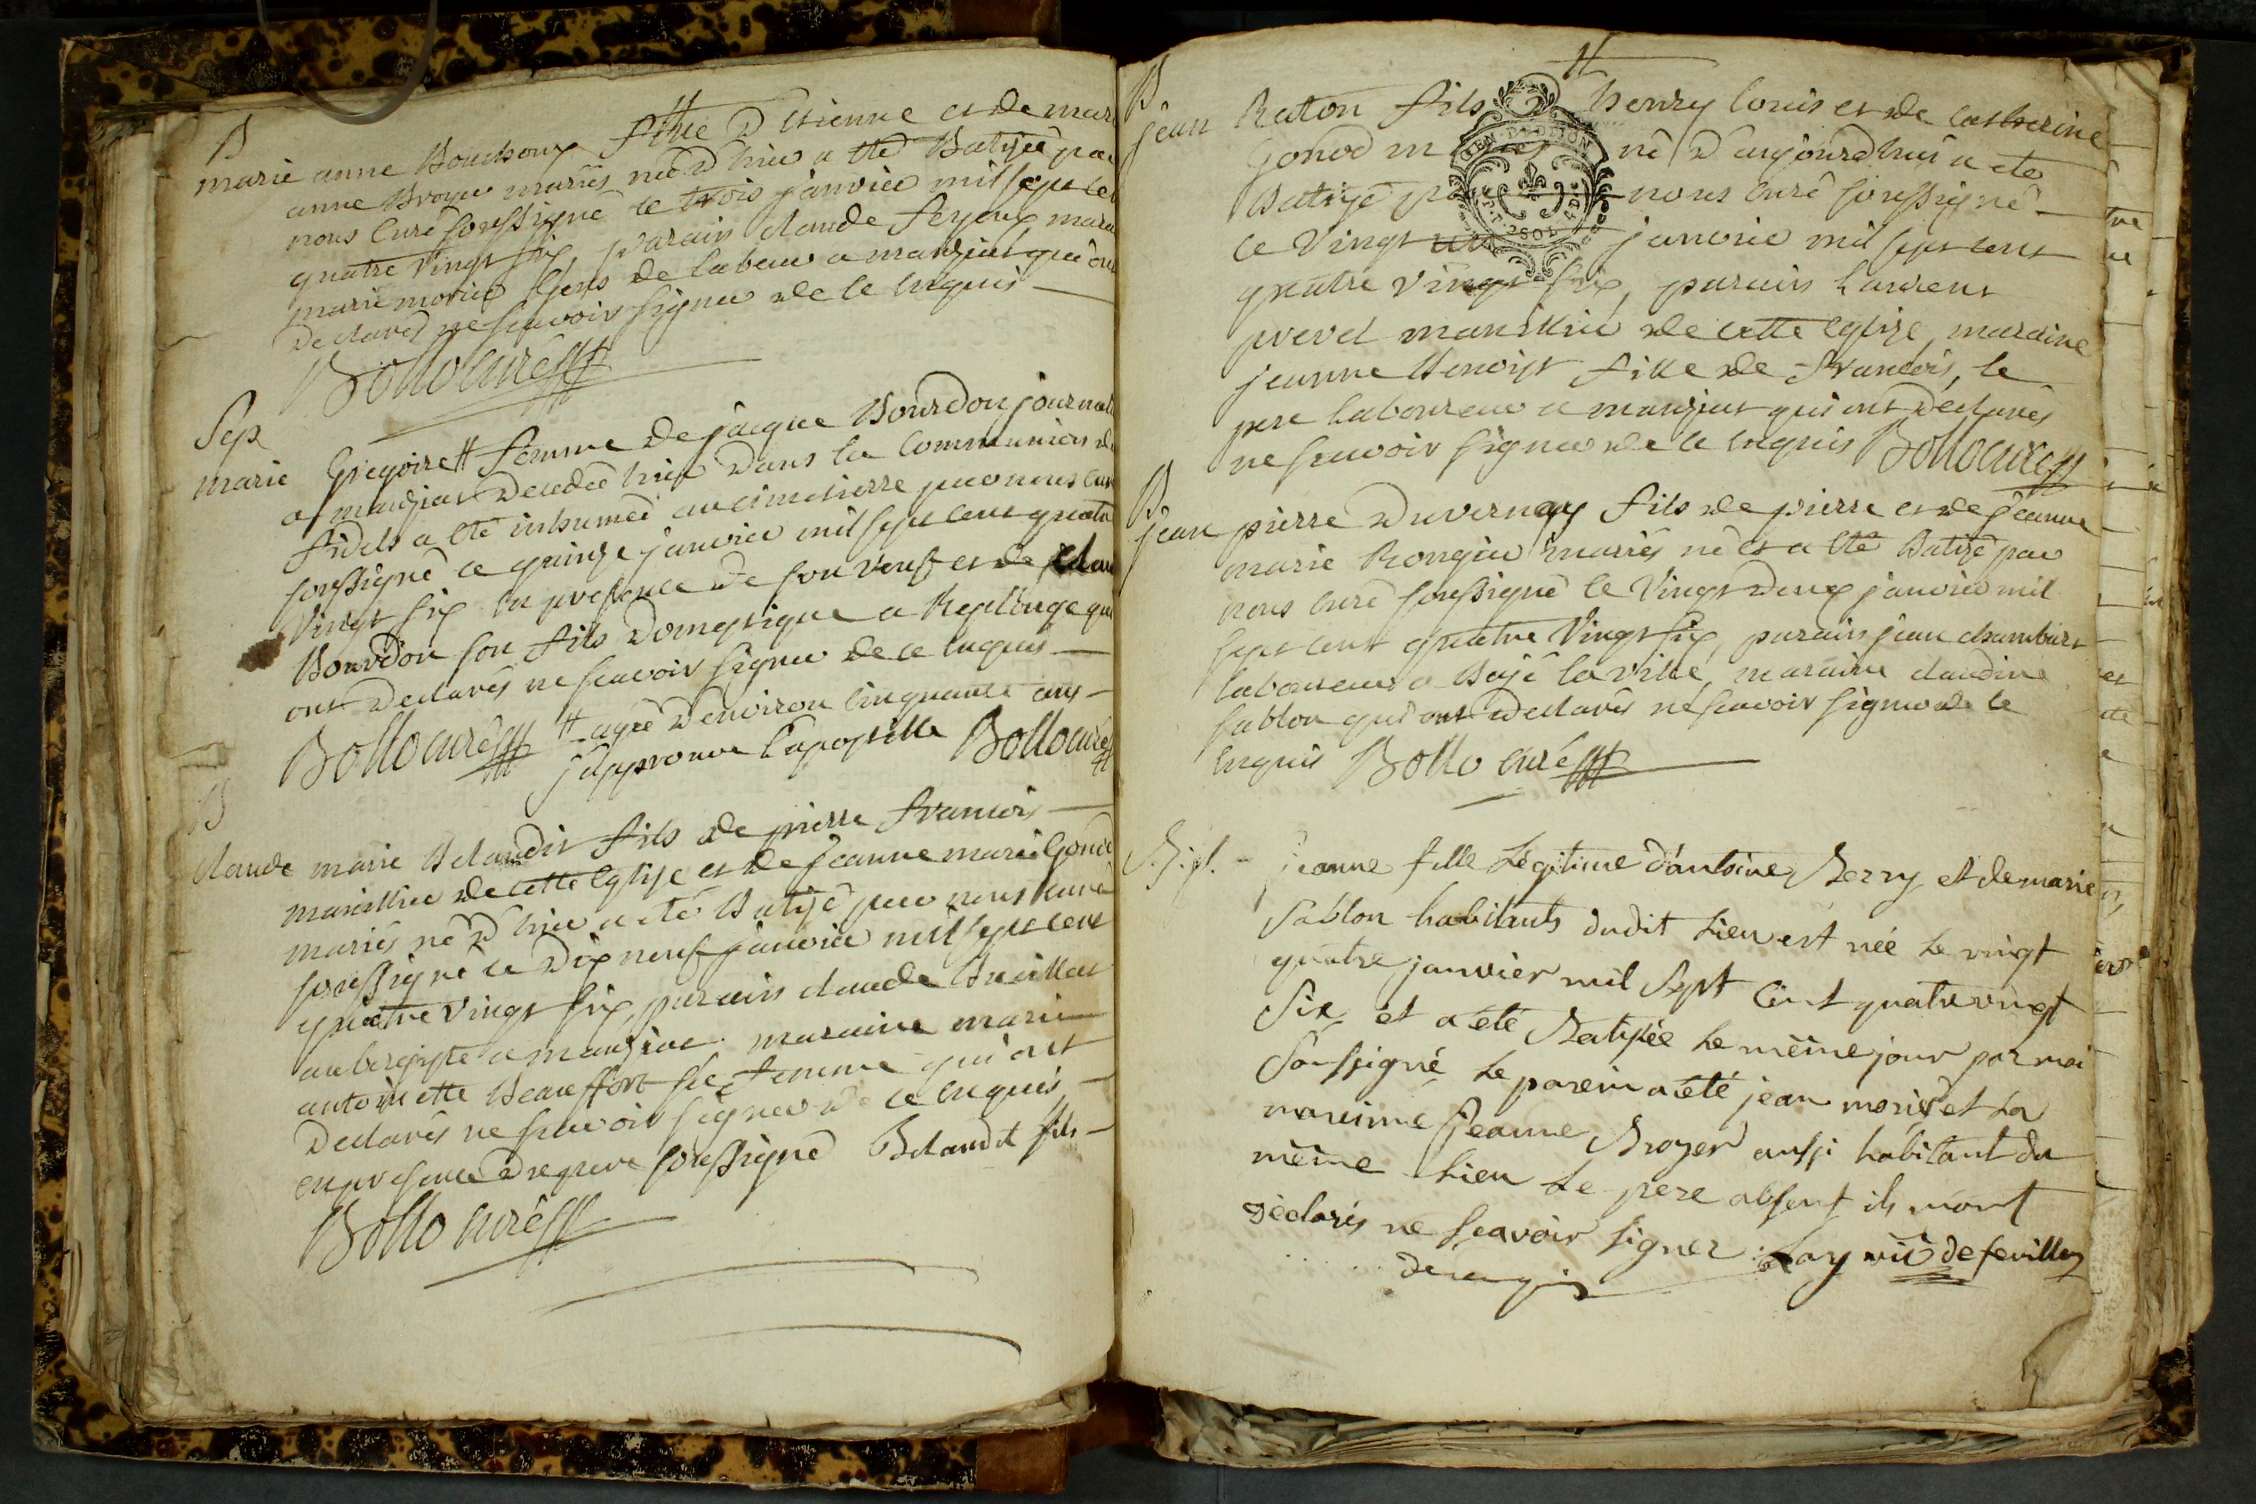 B
marie anne Bouchoux fille D'Etienne et de mar
anne Broyer mariés née D'hier a été Batisée par
nous Curé soussigné le trois janvier mil sept cen
quatre vingt six, parain claude feyeux marai
marie morier Gens de labeur a manziat qui ont
Declarés ne scavoir signer de ce Enquis
Bollo curé
Sep
marie Gregoire # femme de jacque Bourdon journal
a manziat decedée hier dans la Communion de
fidels a été inhumée au cimetierre par nous cur
soussigné le quinze janvier mil sept cent quatre
vingt six en presence de son veuf et de
Bourdon son fils Domestique a Replonge qui
ont Declarés ne scavoir signer de ce enquis
Bollo curé # agée D'environ cinquante ans
j'approuve l'apostille Bollo curé
B
claude marie Belaudit fils de pierre francois
manillier de cette Eglise et de jeanne marie Gonod
mariés né D'hier a été Batisé par nous curé
soussigné le Dix neuf janvier mil sept cent
quatre vingt six, parain claude
aubergiste a manziat maraine marie
antoinette Beauffort sa femme qui ont
Declarés ne scavoir signer de ce enquis
en presence du pere soussigné Belaudit fils
Bollo curé
B
jean Raton fils D henry louis et de catherine
Gonod m né D'aujourdhui a été
Batisé p nous curé soussigné
le vingt un janvier mil sept cent
quatre vingt six, parain Laurent
prevel manillier de cette eglise, maraine
jeanne Benoist fille de francois, le
pere laboureur a manziat qui ont Declarés
ne scavoir signer de ce enquis Bollo curé
B
jean pierre Duvernay fils de pierre et de jeanne
marie Rongier mariés né et a été Batisé par
nous curé soussigné le vingt deux janvier mil
sept cent quatre vingt six, parain jean chambard
laboureur a Bagé la ville, maraine claudine
sablon qui ont declarés ne scavoir signer de ce
enquis Bollo curé
Bapt. jeanne fille Légitime d'antoine Berry et de marie
Sablon habitants dudit Lieu est née Le vingt
quatre janvier mil Sept Cent quatre vingt
Six et a été Batisée Le même jour par moi
Soussigné Le parein a été jean morier et La
mareine jeanne Broyer aussi habitant du
même Lieu Le pere absent ils m'ont
déclarés ne Scavoir signer: Lay vic de feuillens
de enquis